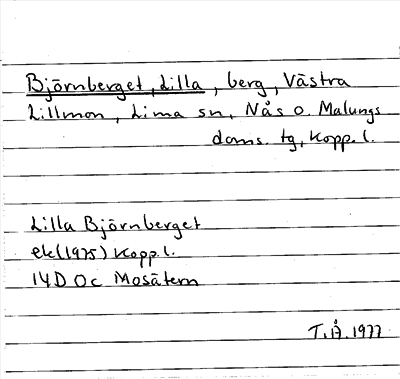 Björnberget, Lilla, berg, Västra
Lillmon, Lima sn, Nås o. Malungs
doms. tg, Kopp. l.
Lilla Björnberget
ek (1975) Kopp. l.
14D 0c Mosätern
T.Å. 1977